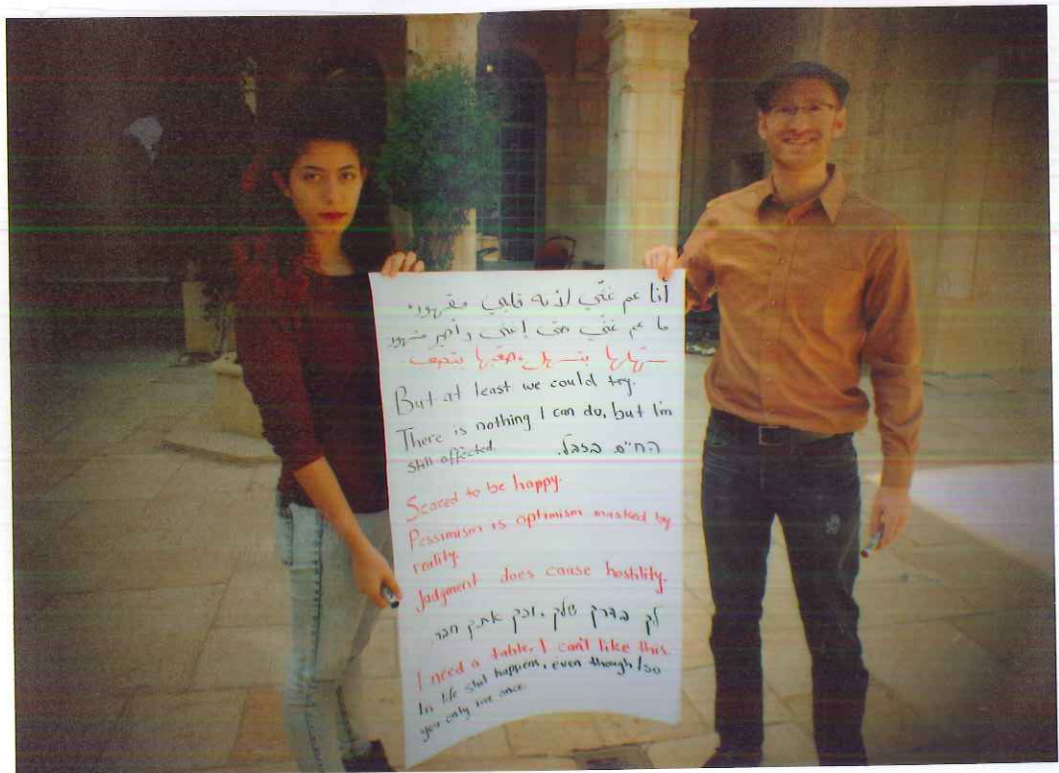 أنا عم غنّي لأنه قلبي مقهور
ما عم غنّي حتى إغنى وأصير مشهور
But at least we could try.
There is nothing I can do, but I'm
still affected.
החיים בזבל.
Scared to be happy.
Pessimism is optimism masked by
reality.
Judgment does cause hostility.
לך בדרך שלך, וכך אתך חבר.
I need a table, I can't like this.
In life shit happens, even though/so
you only live once.